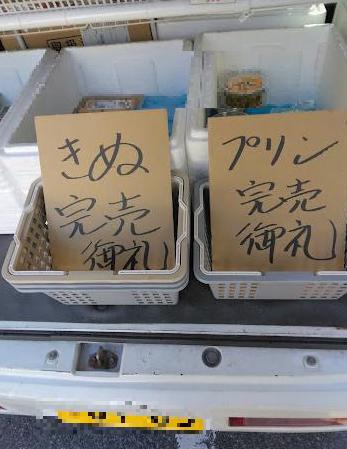 きぬ
完売
御礼
プリン
完売
御礼